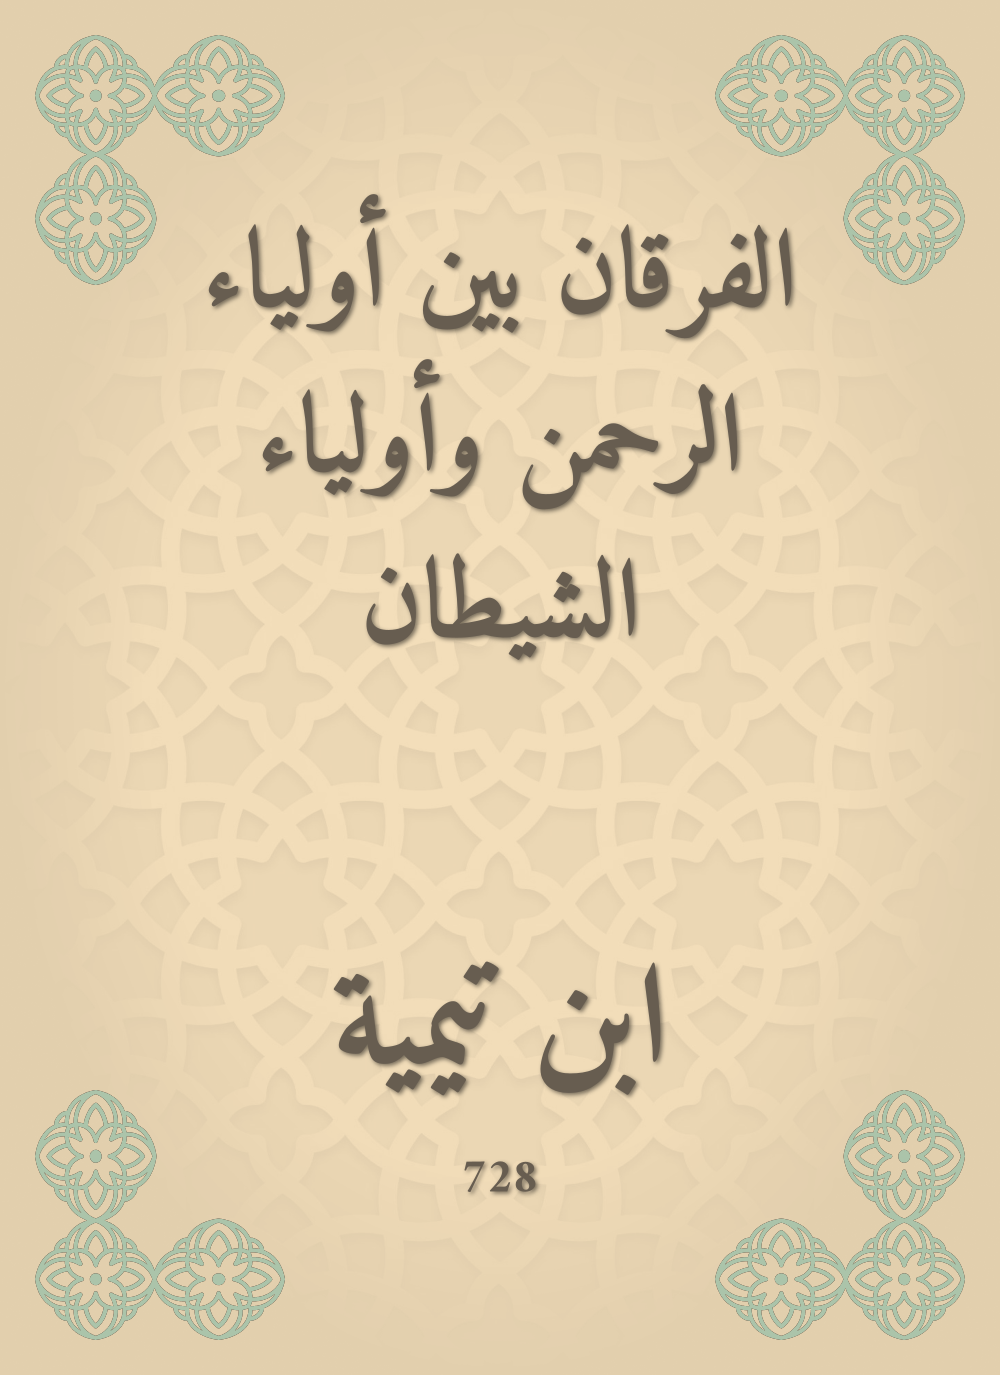 الفرقان بين أولياء
الرحمن وأولياء
الشيطان
ابن تيمية
728